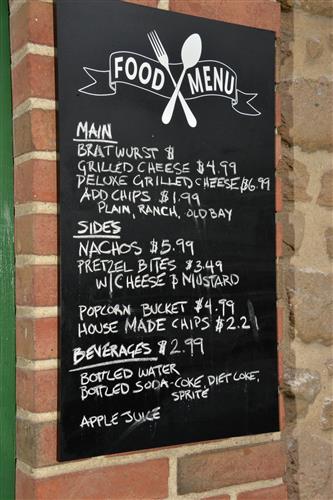 FOOD MENU
MAIN
BRATWURST $
GRILLED CHEESE $4.99
DELUXE GRILLED CHEESE $6.99
ADD CHIPS $1.99
PLAIN, RANCH, OLD BAY
SIDES
NACHOS $5.99
PRETZEL BITES $3.49
W/ CHEESE & MUSTARD
POPCORN BUCKET $4.99
HOUSE MADE CHIPS $2.21
BEVERAGES $2.99
BOTTLED WATER
BOTTLED SODA-COKE, DIET COKE,
SPRITE
APPLE JUICE